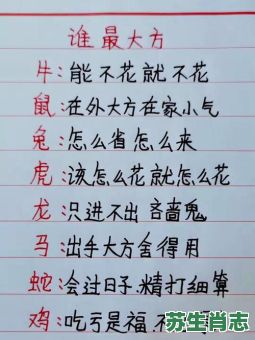 谁最大方
牛:能不花就不花
鼠:在外大方在家小气
兔:怎么省怎么来
虎:该怎么花就怎么花
龙:只进不出 吝啬鬼
马:出手大方舍得用
蛇:会过日子.精打细算
鸡:吃亏是福.不
苏生肖志